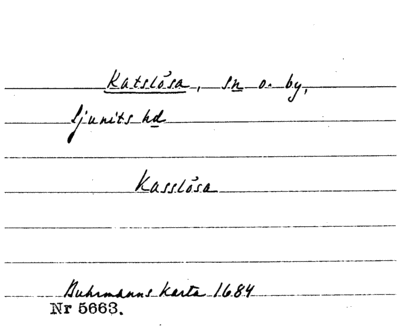 Katslösa, sn o. by,
Ljunits hd
Kasslösa
Buhrmanns karta 1684
Nr 5663.